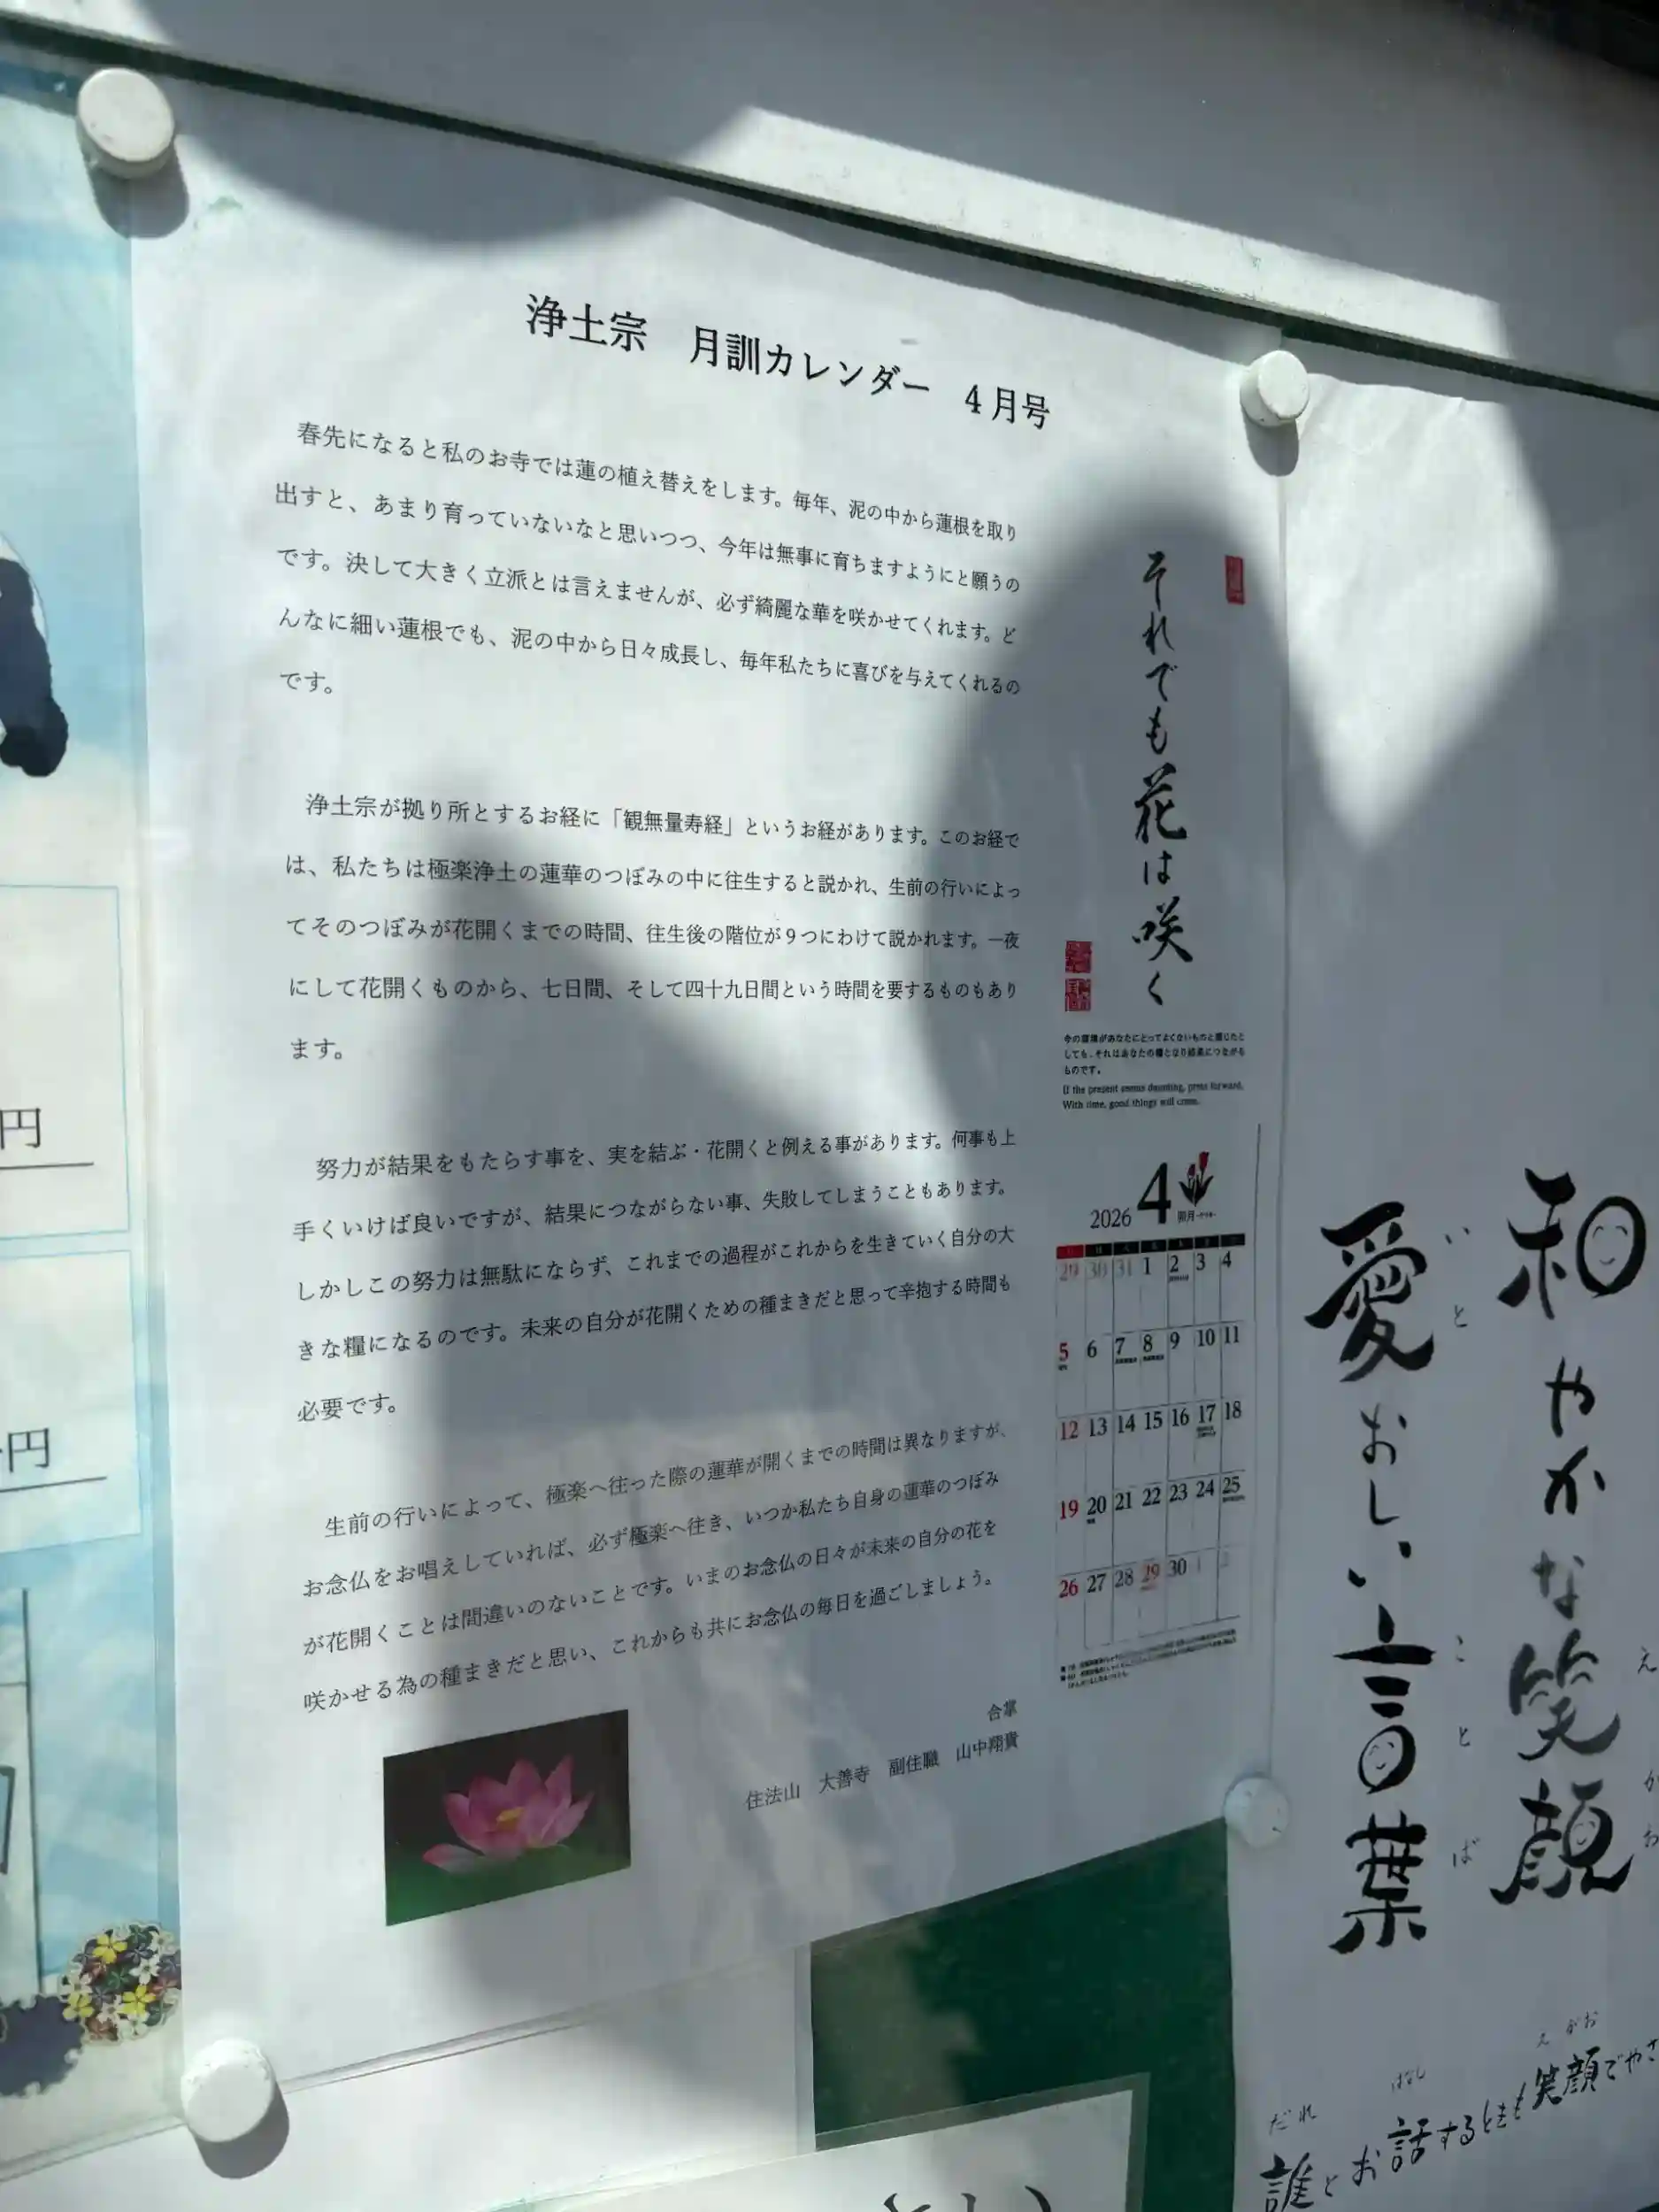 浄土宗　月訓カレンダー　４月号
春先になると私のお寺では蓮の植え替えをします。毎年、泥の中から蓮根を取り
出すと、あまり育っていないなと思いつつ、今年は無事に育ちますようにと願うの
です。決して大きく立派とは言えませんが、必ず綺麗な華を咲かせてくれます。ど
んなに細い蓮根でも、泥の中から日々成長し、毎年私たちに喜びを与えてくれるの
です。
浄土宗が拠り所とするお経に「観無量寿経」というお経があります。このお経で
は、私たちは極楽浄土の蓮華のつぼみの中に往生すると説かれ、生前の行いによっ
てそのつぼみが花開くまでの時間、往生後の階位が９つにわけて説かれます。一夜
にして花開くものから、七日間、そして四十九日間という時間を要するものもあり
ます。
努力が結果をもたらす事を、実を結ぶ・花開くと例える事があります。何事も上
手くいけば良いですが、結果につながらない事、失敗してしまうこともあります。
しかしこの努力は無駄にならず、これまでの過程がこれからを生きていく自分の大
きな糧になるのです。未来の自分が花開くための種まきだと思って辛抱する時間も
必要です。
生前の行いによって、極楽へ往った際の蓮華が開くまでの時間は異なりますが、
お念仏をお唱えしていれば、必ず極楽へ往き、いつか私たち自身の蓮華のつぼみ
が花開くことは間違いのないことです。いまのお念仏の日々が未来の自分の花を
咲かせる為の種まきだと思い、これからも共にお念仏の毎日を過ごしましょう。
合掌
住法山　大善寺　副住職　山中翔貴
それでも花は咲く
今の環境があなたにとってよくないものと感じたと
しても、それはあなたの糧となり結果につながる
ものです。
If the present seems daunting, press forward.
With time, good things will come.
2026 4 卯月
29 30 31 1 2 3 4
5 6 7 8 9 10 11
12 13 14 15 16 17 18
19 20 21 22 23 24 25
26 27 28 29 30 1 2
和やかな笑顔
えがお
愛おしい言葉
いと
ことば
誰とお話するときも笑顔でやさ
だれ
はなし
えがお
円
円